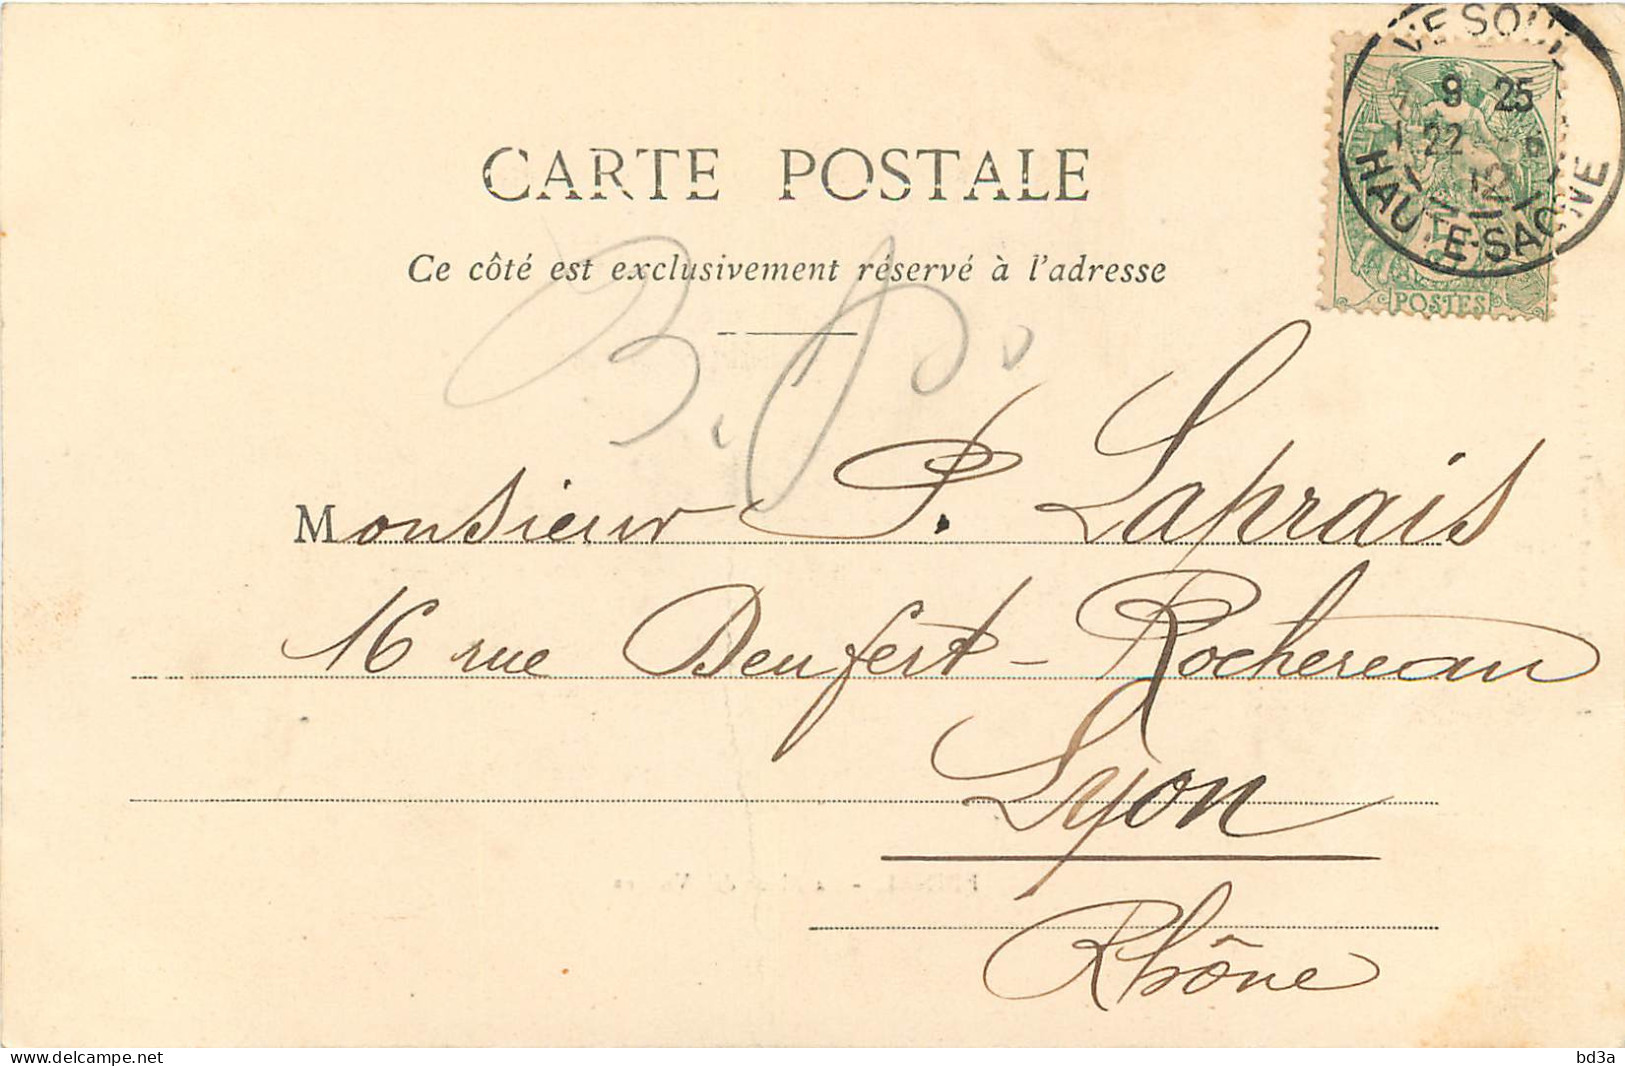 VESOUL
9 25
22
12
HAUTE-SAONE
POSTES
CARTE POSTALE
Ce côté est exclusivement réservé à l'adresse
B. P.
Monsieur P. Laprais
16 rue Denfert-Rochereau
Lyon
Rhône
https://www.delcampe.net
bd3a